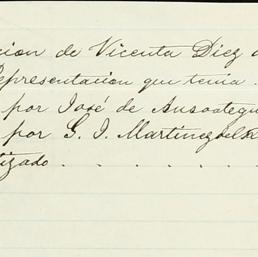 cion de Vicenta Diez d
Representacion que tenia .
por José de Ansoategu
por G. I. Martinez del
tizado . . . . . . .